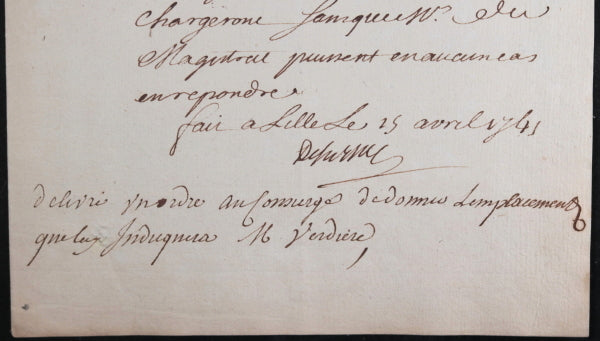 chargeront sansque Mrs. du
Magistrat puissent enaucun cas
enrepondre.
fait a Lille Le 15 avril 1741
delivré ynordre au Consierge dedonner Lemplacement
queluy Indiquera Mr Verdiere